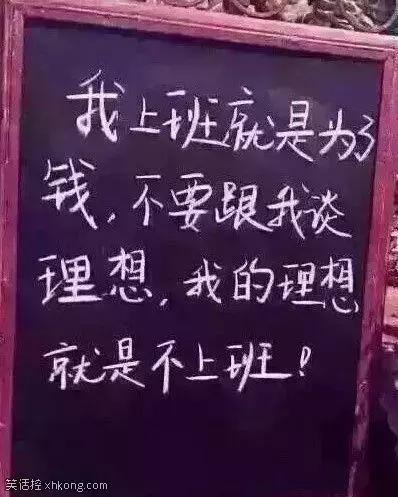 我上班就是为了
钱，不要跟我谈
理想，我的理想
就是不上班！
笑话控 xhkong.com